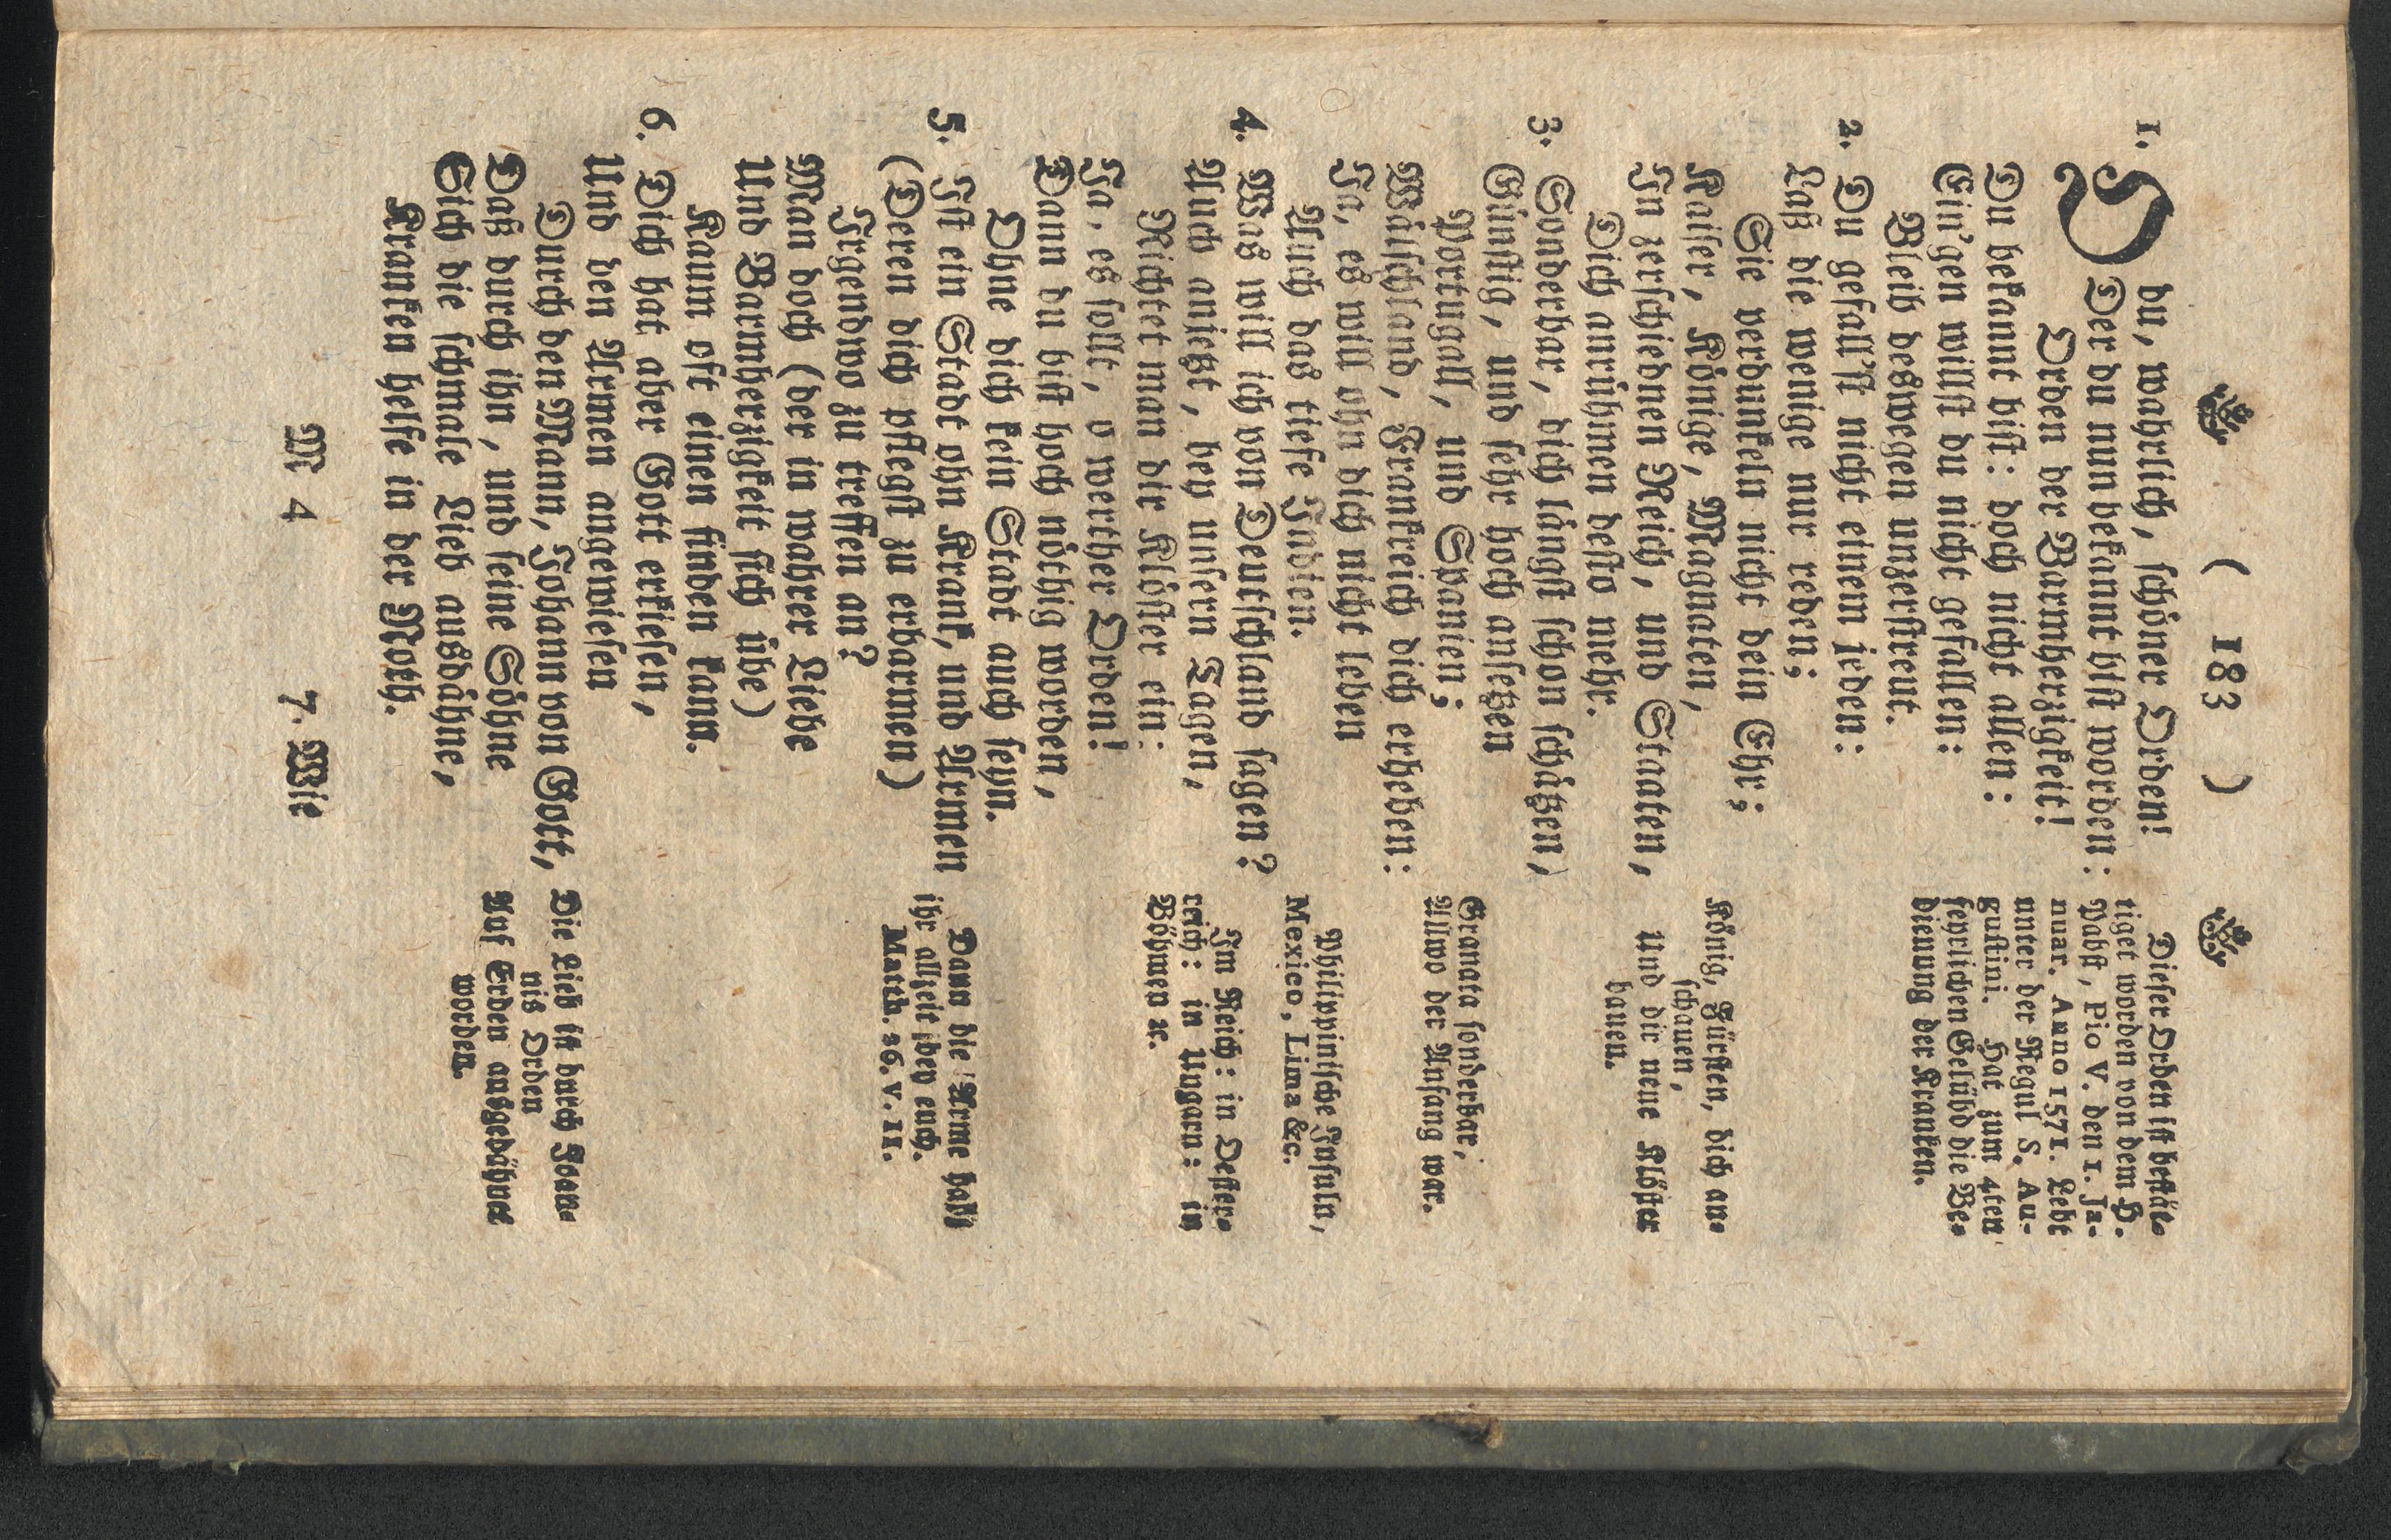 ( 183 )
1. O du, wahrlich, schöner Orden!
Der du nun bekannt bist worden:
Orden der Barmherzigkeit!
Du bekannt bist: doch nicht allen:
Ein'gen willst du nicht gefallen:
Bleib deswegen unzerstreut.
2. Du gefall'st nicht einem jeden:
Laß die wenige nur reden;
Sie verdunkeln nicht dein Ehr;
Kaiser, Könige, Magnaten,
In zerschiednen Reich, und Staaten,
Dich anrühmen desto mehr.
3. Sonderbar, dich längst schon schätzen,
Günstig, und sehr hoch ansetzen
Portugall, und Spanien;
Wälschland, Frankreich dich erheben:
Ja, es will ohn dich nicht leben
Auch das tiefe Indien.
4. Was will ich von Deutschland sagen?
Auch anietzt, bey unsern Tagen,
Richtet man dir Klöster ein:
Ja, es sollt, o werther Orden!
Dann du bist hoch nöthig worden,
Ohne dich kein Stadt auch seyn.
5. Ist ein Stadt ohn Krank, und Armen
(Deren dich pflegst zu erbarmen)
Irgendwo zu treffen an?
Man doch (der in wahrer Liebe
Und Barmherzigkeit sich übe)
Kaum oft einen finden kann.
6. Dich hat aber Gott erkiesen,
Und den Armen angewiesen
Durch den Mann, Johann von Gott,
Daß durch ihn, und seine Söhne
Sich die schmale Lieb ausdähne,
Kranken helfe in der Noth.
M 4
7. Wie
Dieser Orden ist bestät-
tiget worden von dem H.
Pabst, Pio V. den 1. Ja-
nuar. Anno 1571. Lebt
unter der Regul S. Au-
gustini. Hat zum 4ten
feyrlichen Gelübd die Be-
dienung der Kranken.
König, Fürsten, dich an-
schauen,
Und dir neue Klöster
bauen.
Granata sonderbar,
Allwo der Anfang war.
Philippinische Insuln,
Mexico, Lima &c.
Im Reich: in Oester-
reich: in Ungarn: in
Böhmen ꝛc.
Dann die Arme habt
ihr allzeit bey euch.
Matth. 26. v. 11.
Die Lieb ist durch
nis Orden
Auf Erden ausgedähnt
worden.